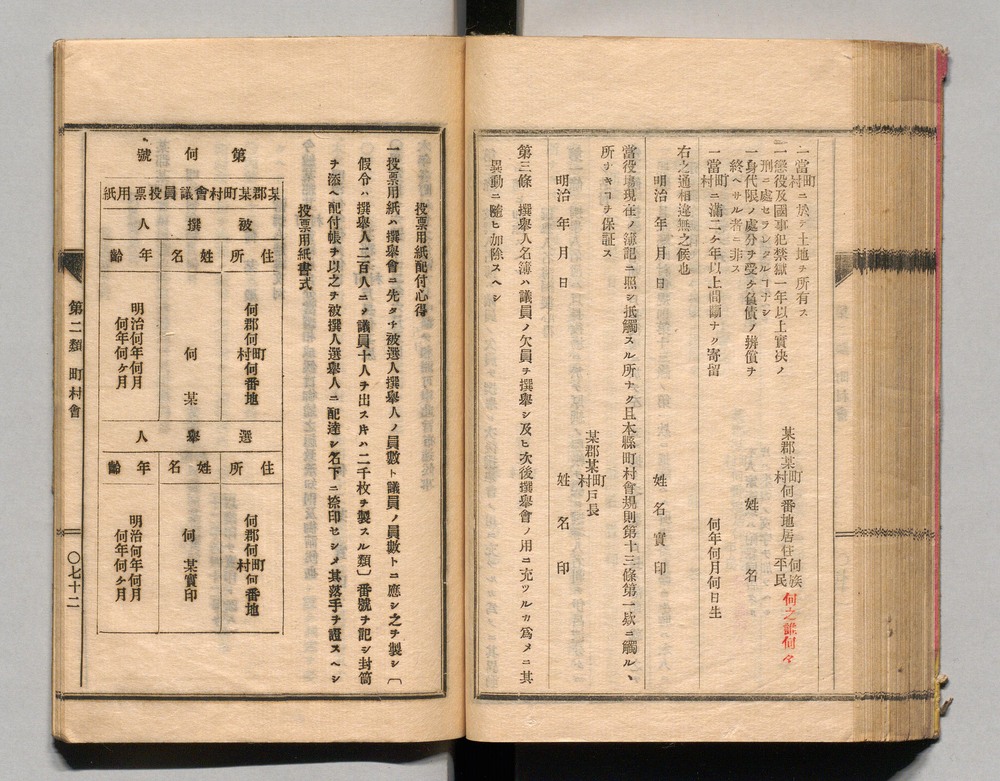 一當町村ニ於テ土地ヲ所有ス
一懲役及國事犯禁獄一年以上實決ノ
刑ニ處セラレタルコナシ
一身代限ノ處分ヲ受ケ負債ノ辨償ヲ
終ヘサル者ニ非ス
一當町村ニ滿二ケ年以上間斷ナク寄留
某郡某町村何番地居住何族平民
何之誰何々
姓名
何年何月何日生
右之通相違無之候也
明治 年 月 日
姓名實印
當役場現在ノ簿記ニ照シ抵觸スル所ナク且本縣町村會規則第十三條第一欵ニ觸ルヽ
所ナキコヲ保証ス
某郡某町村戸長
明治 年 月 日
姓名印
第三條 撰擧人名簿ハ議員ノ欠員ヲ撰擧シ及ヒ次後撰擧會ノ用ニ充ツルカ爲メニ其
異動ニ隨ヒ加除スヘシ
投票用紙配付心得
一投票用紙ハ撰擧會ニ先タチ被選人撰擧人ノ員數ト議員ノ員數トニ應シ之ヲ製シ〔
假令ハ撰擧人二百人ニメ議員十人ヲ出ス片ハ二千枚ヲ製スル類〕番號ヲ記シ封筒
ヲ添ヘ配付帳ヲ以之ヲ被撰人選擧人ニ配達シ名下ニ捺印セシメ其落手ヲ證スヘシ
投票用紙書式
第何號
某郡某町村會議員投票用紙
被撰人
住所
姓名
年齡
何郡何町村何番地
何某
明治何年何月
何年何ヶ月
選擧人
住所
姓名
年齡
何郡何町村何番地
何某實印
明治何年何月
何年何ヶ月
第二類 町村會
〇七十二